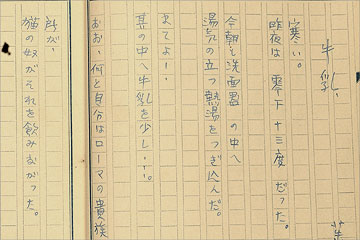 牛乳、
寒い。
昨夜は 零下十三度だった。
今朝も洗面器の中へ
湯気の立つ熱湯をつぎ込んだ。
さてよー
其の中へ牛乳を少し…。
おお、何と自分はローマの貴族
所が、
猫の奴がそれを飲みおがった。